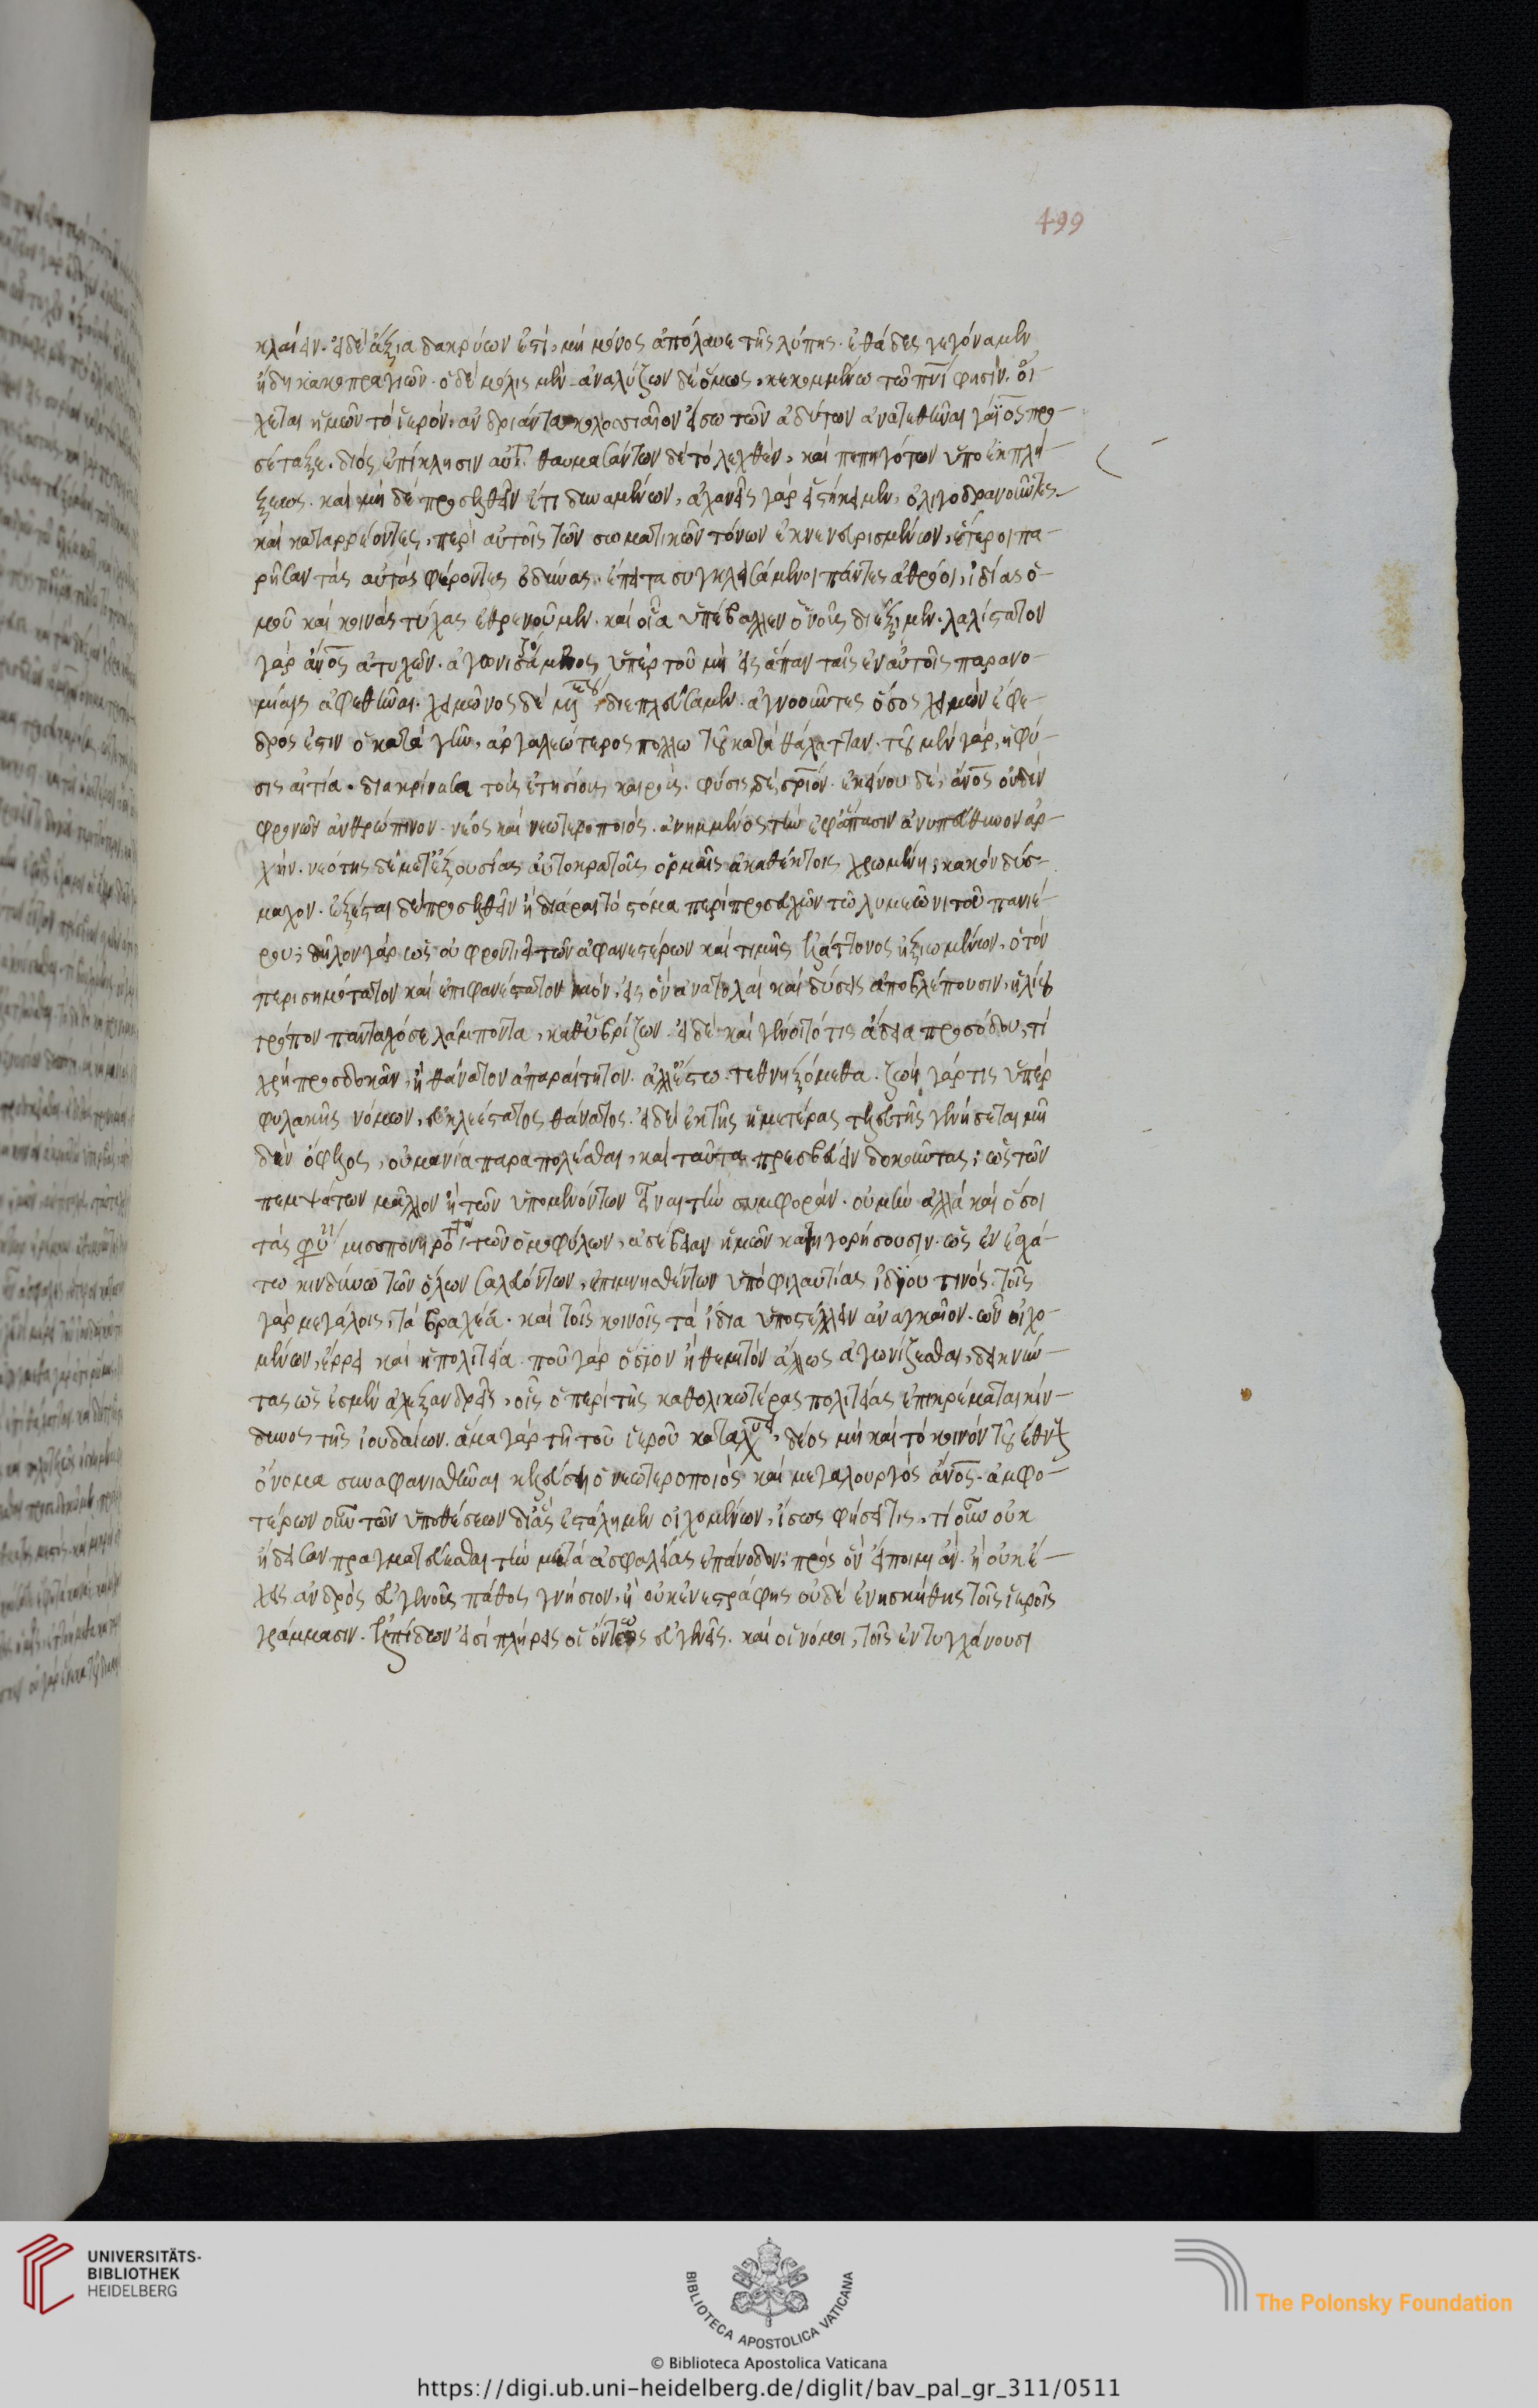 κλαίειν· εἰ δὲ ἄξια δακρύων ἐστί, μὴ μόνος ἀπόλαυε τῆς λύπης. ἐθάδες γεγόναμεν
ἤδη κακοπραγιῶν. ὁ δὲ μόλις μὲν ἀναλύζων δὲ ὅμως, κεκομμένω τῶ πνι φησίν. οἴ-
χεται ἡμῶν τὸ ἱερόν. ἀνδριάντα κολοσσιαῖον εἴσω τῶν ἀδύτων ἀνατεθῆναι γάϊος προ-
σέταξε. διὸς ἐπίκλησιν αὐτ. θαυμασάντων δὲ τὸ λεχθέν, καὶ πεπηγότων ὑπὸ ἐκπλή-
ξεως. καὶ μὴ δὲ προσελθεῖν ἔτι δυναμένων, ἀχανεῖς γὰρ εἱστήκειμεν, ὀλιγοδρανοῦντες
καὶ καταρρέοντες, περὶ αὐτοῖς τῶν σωματικῶν τόνων ἐκνενευρισμένων, ἕτεροι πα-
ρῆσαν τὰς αὐτὰς φέροντες ὠδῖνας. ἔπειτα συγκλεισάμενοι πάντες ἀθρόοι, ἰδίας ὁ-
μοῦ καὶ κοινὰς τύχας ἐθρηνοῦμεν. καὶ οἷα ὑπέβαλλεν ὁ νοῦς διεξῄμεν. λαλίστατον
γὰρ ἄνος ἀτυχῶν. ἀγωνισάμενος ὑπὲρ τοῦ μὴ εἰς ἅπαν ταῖς ἐν αὐτοῖς παρανο-
μίαις ἀφεθῆναι. χειμῶνος δὲ διεπλεύσαμεν. ἀγνοοῦντες ὅσος χειμὼν ἔφε-
δρός ἐστιν ὁ κατὰ γῆν, ἀργαλεώτερος πολλῶ τοῦ κατὰ θάλατταν. τοῦ μὲν γὰρ, ἡ φύ-
σις αἰτία. διακρίνουσα τοὺς ἐτησίους καιρούς. φύσις δὲ, σριόν. ἐκείνου δὲ, ἄνος οὐδὲν
φρονῶν ἀνθρώπινον. νέος καὶ νεωτεροποιός. ἀνημμένος τὴν ἐφάπασιν ἀνυπεύθυνον ἀρ-
χήν. νεότης δὲ μετ' ἐξουσίας αὐτοκρατοῦς ὁρμαῖς ἀκαθέκτοις χρωμένη, κακὸν δύσ-
μαχον. ἐξέσται δὲ προσελθεῖν ἢ διάραι τὸ στόμα περὶ προσευχῶν τῶ λυμεῶνι τοῦ πανιέ-
ρου; δῆλον γὰρ ὡς οὐ φροντιεῖ τῶν ἀφανεστέρων καὶ τιμῆς ἐλάττονος ἠξιωμένων, ὁ τὸν
περισημότατον καὶ ἐπιφανέστατον ναόν, εἰς ὃν ἀνατολαὶ καὶ δύσεις ἀποβλέπουσιν, ἡλίου
τρόπον πανταχόσε λάμποντα, καθυβρίζων. εἰ δὲ καὶ γένοιτό τις ἄδεια προσόδου, τί
χρὴ προσδοκᾶν, ἢ θάνατον ἀπαραίτητον. ἀλλ' ἔστω. τεθνηξόμεθα. ζωὴ γάρ τις ὑπὲρ
φυλακῆς νόμων, εὐκλεέστατος θάνατος. εἰ δὲ ἐκ τῆς ἡμετέρας τελευτῆς γενήσεται μη
δὲν ὄφελος, οὐ μανία παραπολέσθαι, καὶ ταῦτα πρεσβεύειν δοκοῦντας; ὡς τῶν
πεμψάντων μᾶλλον ἢ τῶν ὑπομενόντων εἶναι τὴν συμφοράν. οὐ μὴν ἀλλὰ καὶ ὅσοι
τὰς φύ μισοπονηρό τῶν ὁμοφύλων, ἀσέβειαν ἡμῶν κατηγορήσουσιν. ὡς ἐν ἐσχά-
τω κινδύνω τῶν ὅλων σαλευόντων, ἐπιμνησθέντων ὑπὸ φιλαυτίας ἰδίου τινός. τοῖς
γὰρ μεγάλοις, τὰ βραχέα. καὶ τοῖς κοινοῖς τὰ ἴδια ὑποστέλλειν ἀναγκαῖον. ὧν οἰχο-
μένων, ἔρρει καὶ ἡ πολιτεία. ποῦ γὰρ ὅσιον ἢ θεμιτὸν ἄλλως ἀγωνίζεσθαι, δεικνύν-
τας ὡς ἐσμὲν ἀλεξανδρεῖς, οἷς ὁ περὶ τῆς καθολικωτέρας πολιτείας ἐπικρέμαται κίν-
δυνος τῆς ἰουδαίων. ἅμα γὰρ τῆ τοῦ ἱεροῦ καταλύσει, δέος μὴ καὶ τὸ κοινὸν τοῦ ἔθνους
ὄνομα συναφανισθῆναι κελεύσῃ ὁ νεωτεροποιὸς καὶ μεγαλουργὸς ἄνος. ἀμφο-
τέρων οὖν τῶν ὑποθέσεων δι' ἃς ἐστάλημεν οἰχομένων, ἴσως φήσει τις, τί οὖν οὐκ
ᾔδεισαν πραγματεύεσθαι τὴν μετὰ ἀσφαλείας ἐπάνοδον; πρὸς ὃν εἴποιμι ἄν. ἢ οὐκ ἔ-
χεις ἀνδρὸς εὐγενοῦς πάθος γνήσιον, ἢ οὐκ ἐνετράφης οὐδὲ ἐνησκήθης τοῖς ἱεροῖς
γράμμασιν. ἐλπίδων εἰσὶ πλήρεις οἱ ὄντως εὐγενεῖς. καὶ οἱ νόμοι, τοῖς ἐντυγχάνουσι
499
UNIVERSITÄTS-
BIBLIOTHEK
HEIDELBERG
BIBLIOTECA APOSTOLICA VATICANA
The Polonsky Foundation
© Biblioteca Apostolica Vaticana
https://digi.ub.uni-heidelberg.de/diglit/bav_pal_gr_311/0511